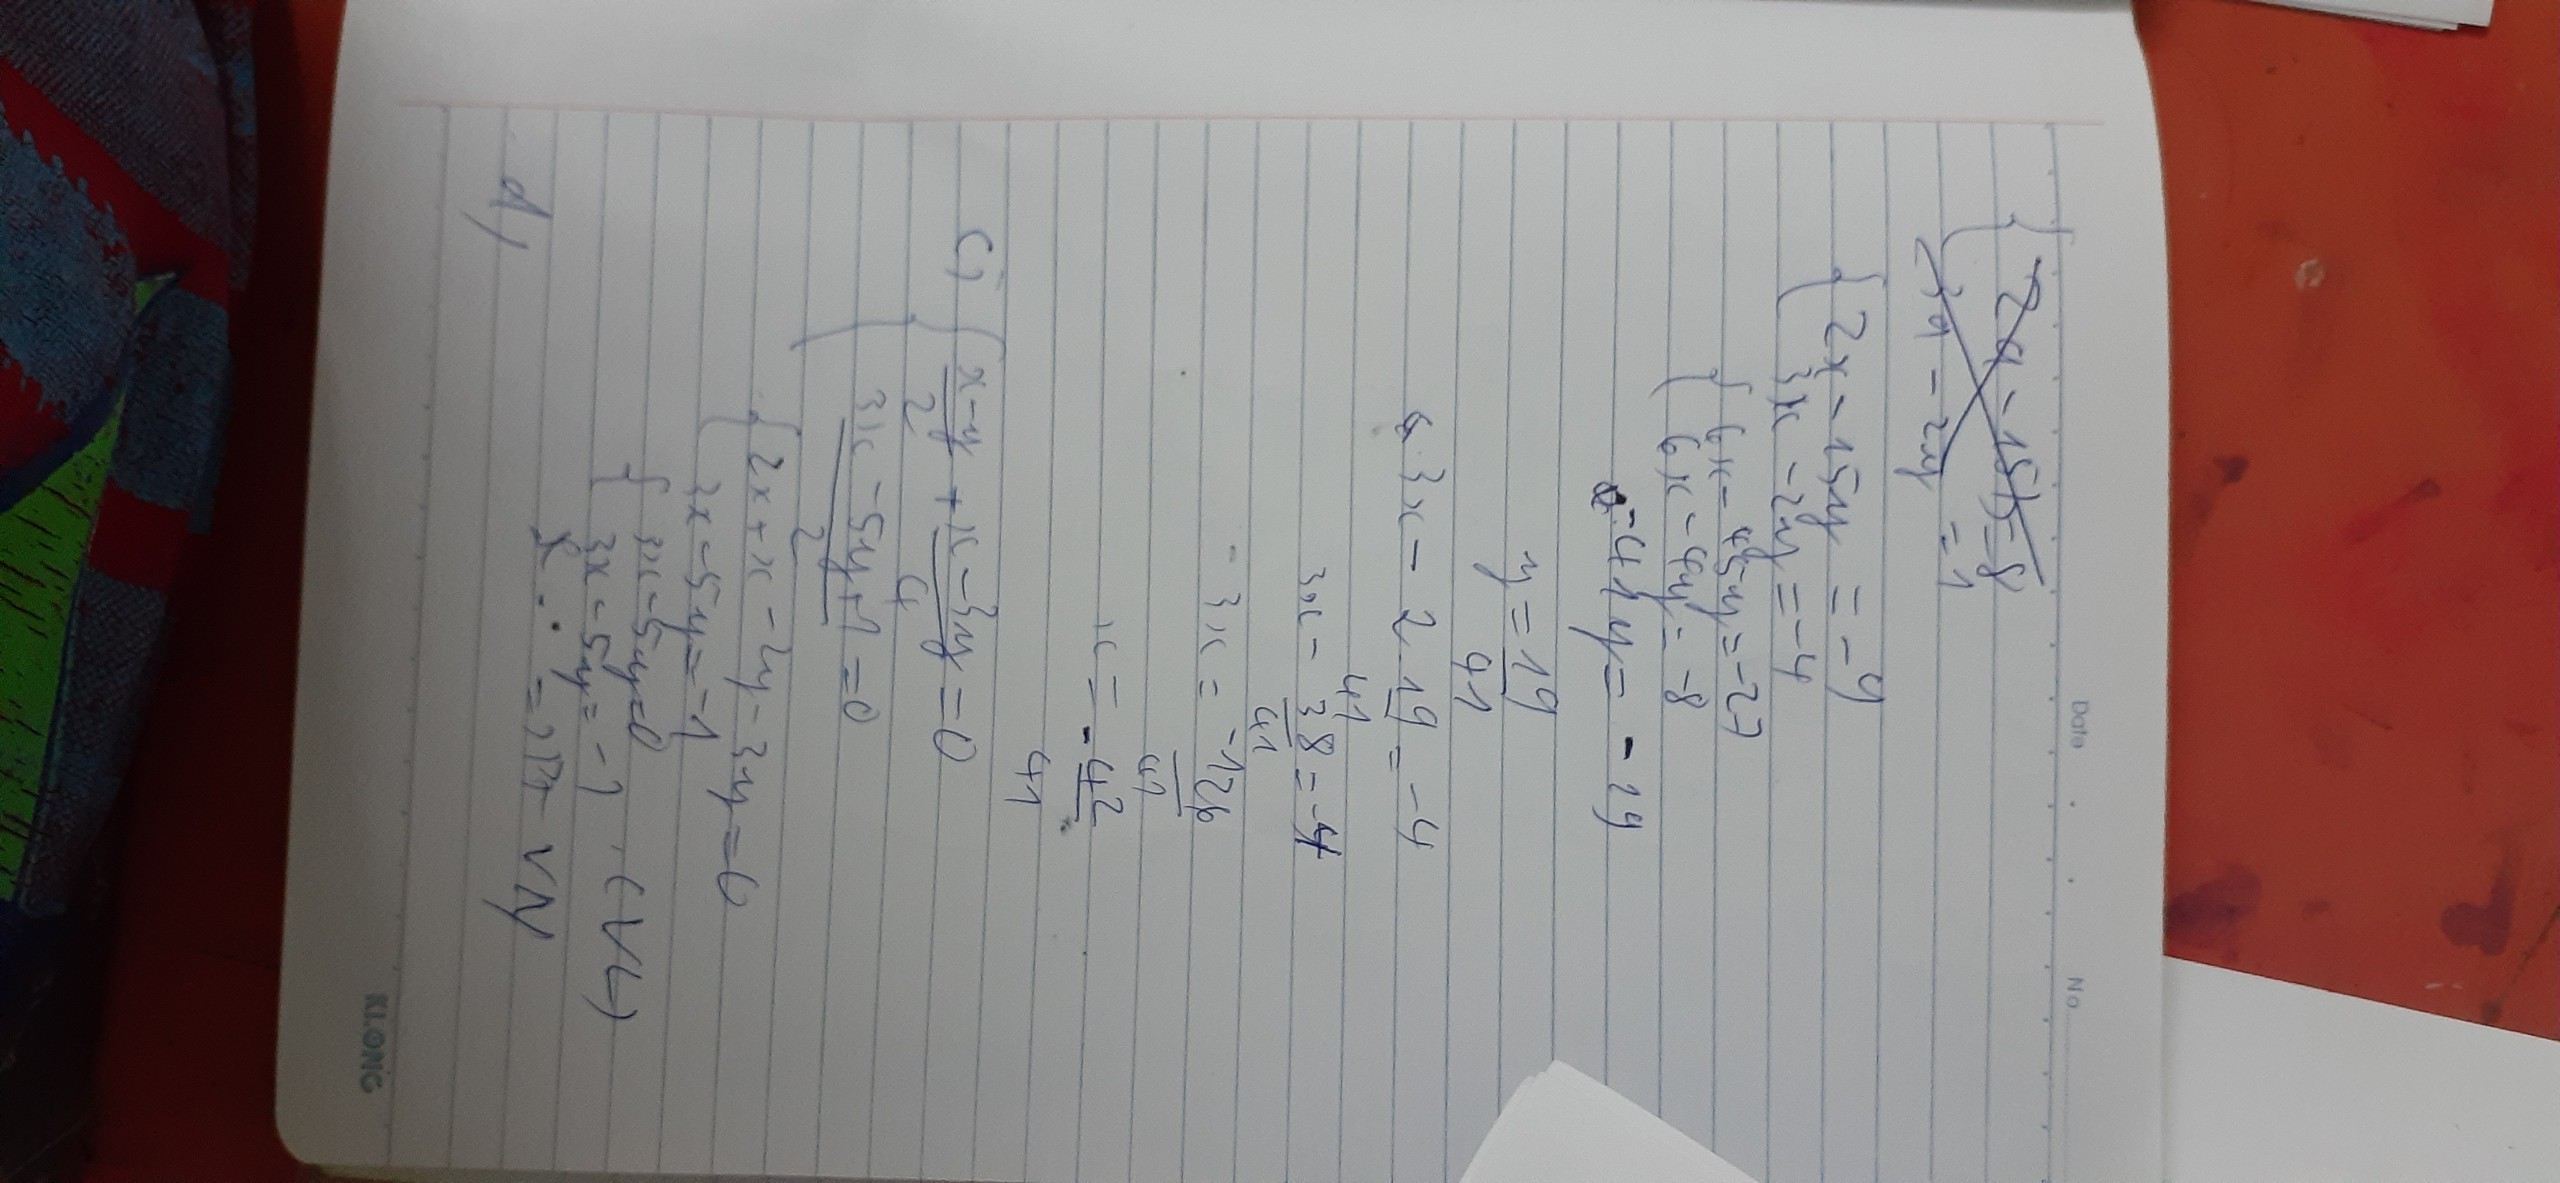 Date No
2x - 15y = -9
3x - 2y = -4
6x - 45y = -27
6x - 4y = -8
-41y = -19
y = 19/41
3x - 2 · 19/41 = -4
3x - 38/41 = -4
3x = -126/41
x = -42/41
c) x-y/2 + x-3y/4 = 0
3x - 5y+1/2 = 0
2x + x - 2y - 3y = 0
3x - 5y = -1
3x - 5y = 0
3x - 5y = -1 (VL)
=> Pt VN
d)
KLONG